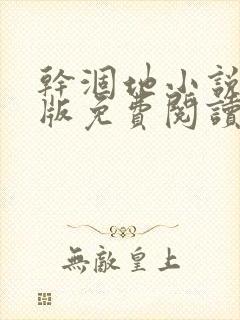 幹涸地小説
版免費閱讀
無敵皇上